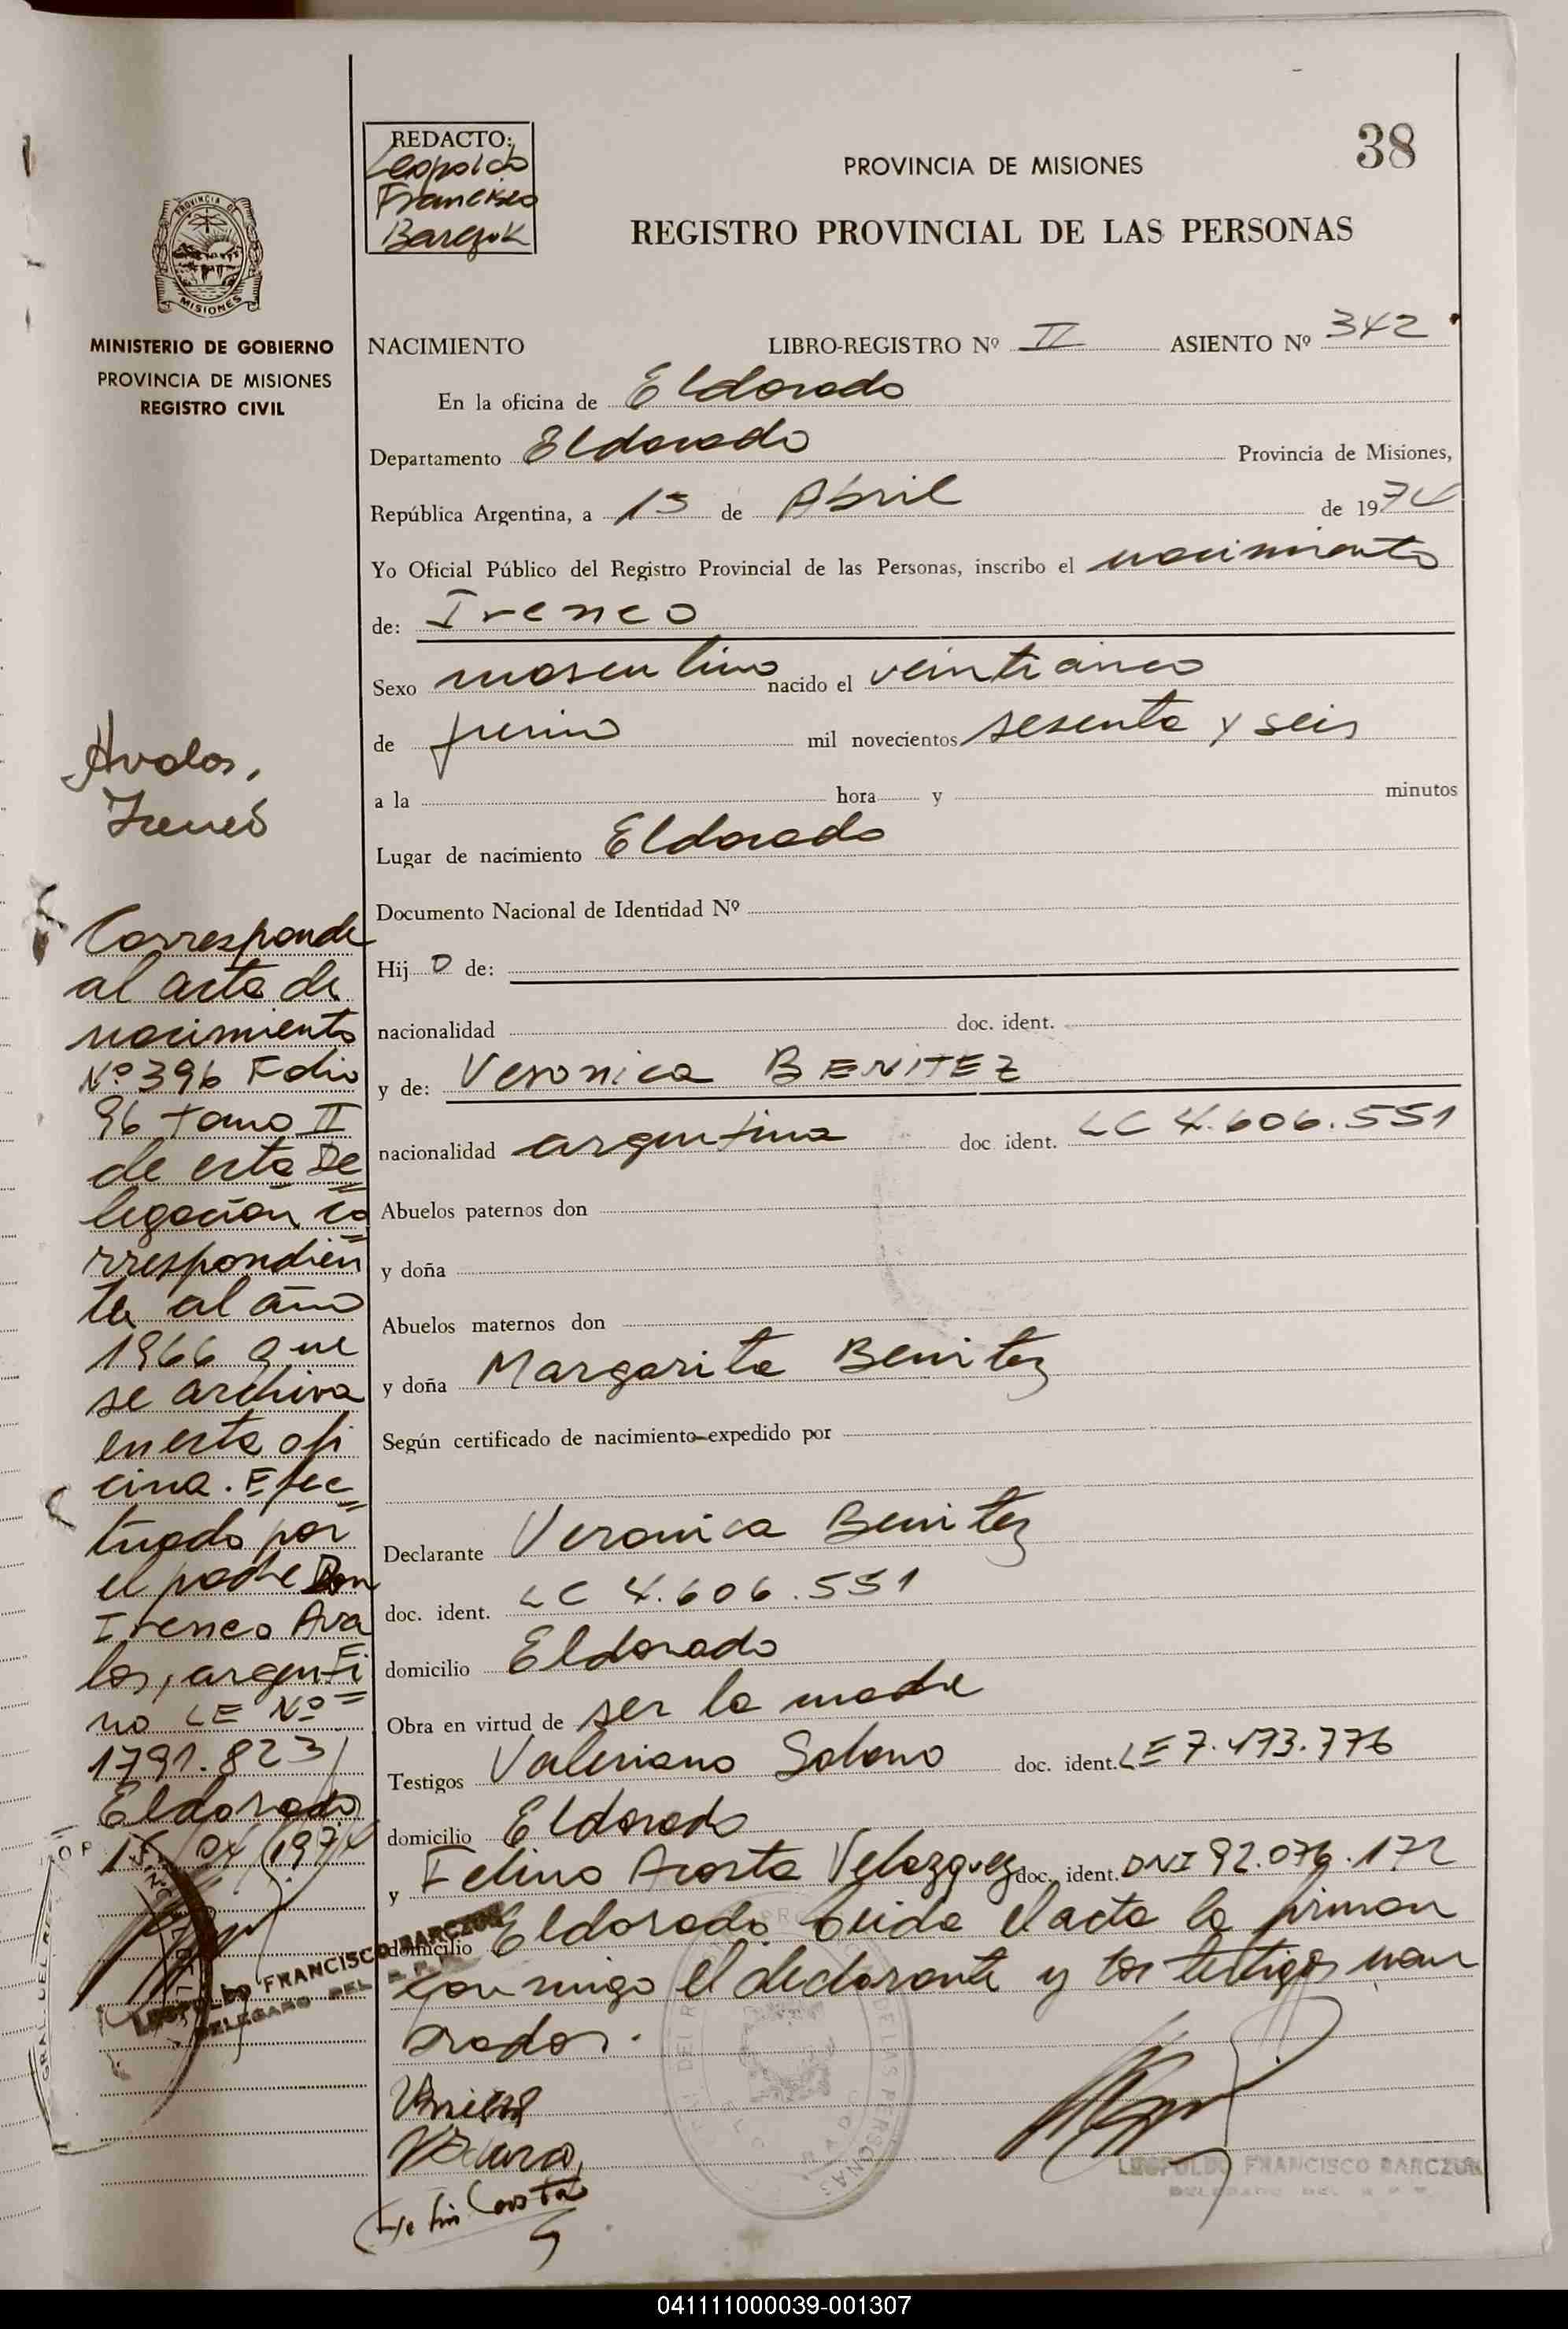 38
REDACTO:
Leopoldo
Francisco
PROVINCIA DE MISIONES
REGISTRO PROVINCIAL DE LAS PERSONAS
PROVINCIA DE
MISIONES
MINISTERIO DE GOBIERNO
PROVINCIA DE MISIONES
REGISTRO CIVIL
Avalos,
Ireneo
Corresponde
al acta de
nacimiento
Nº 396 Folio
96 tomo II
de esta De=
legación co=
rrespondien
te al año
1966 que
se archiva
en esta ofi
cina. Efec=
tuado por
el padre Don
Ireneo Ava
los, argenti=
no LE Nº
1791.823
Eldorado
15/04/1974
LEOPOLDO FRANCISCO BARCZUK
DELEGADO DEL R.P.P.
NACIMIENTO LIBRO-REGISTRO Nº II ASIENTO Nº 342
En la oficina de Eldorado
Departamento Eldorado Provincia de Misiones,
República Argentina, a 15 de Abril de 1974
Yo Oficial Público del Registro Provincial de las Personas, inscribo el nacimiento
de: Ireneo
Sexo masculino nacido el veinticinco
de junio mil novecientos sesenta y seis
a la hora y minutos
Lugar de nacimiento Eldorado
Documento Nacional de Identidad Nº
Hij o de:
nacionalidad doc. ident.
y de: Veronica BENITEZ
nacionalidad argentina doc. ident. LC 4.606.551
Abuelos paternos don
y doña
Abuelos maternos don
y doña Margarita Benitez
Según certificado de nacimiento expedido por
Declarante Veronica Benitez
doc. ident. LC 4.606.551
domicilio Eldorado
Obra en virtud de ser la madre
Testigos Valeriano Solano doc. ident. LE 7.473.776
domicilio Eldorado
y Felino Acosta Velazquez doc. ident. DNI 92.076.172
domicilio Eldorado. Leida el acta la firman
conmigo el declarante y los testigos nom
brados.
LEOPOLDO FRANCISCO BARCZUK
DELEGADO DEL R.P.P.
041111000039-001307